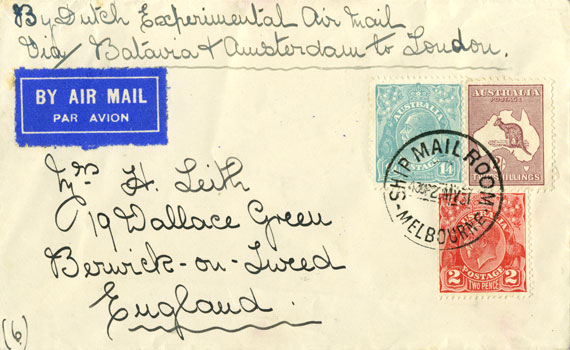 By Dutch Experimental Air Mail
Via Batavia & Amsterdam to London.
BY AIR MAIL
PAR AVION
AUSTRALIA
POSTAGE
1/4
AUSTRALIA
POSTAGE
SHILLINGS
SHIP MAIL ROOM
MELBOURNE
POSTAGE
2 2
TWO PENCE
Mrs H. Leith
19 Wallace Green
Berwick-on-Tweed
England.
(6)